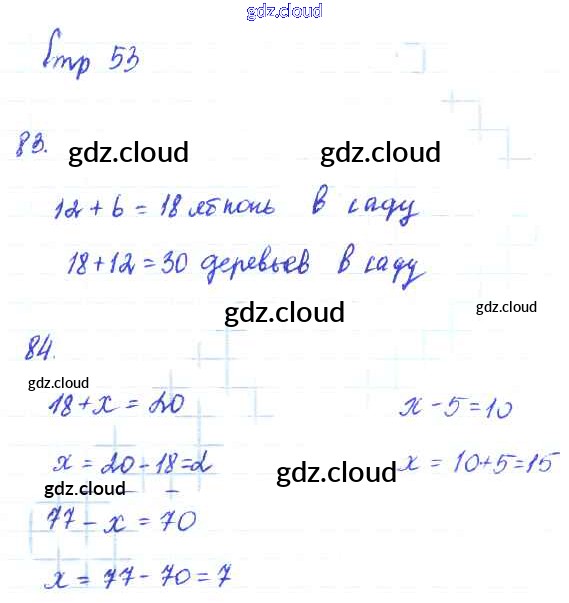 gdz.cloud
Стр 53
83.
gdz.cloud gdz.cloud
12 + 6 = 18 яблонь в саду
18 + 12 = 30 деревьев в саду
gdz.cloud gdz.cloud
84.
gdz.cloud
18 + х = 20 х - 5 = 10
х = 20 - 18 = 2 gdz.cloud х = 10 + 5 = 15
gdz.cloud
77 - х = 70
х = 77 - 70 = 7